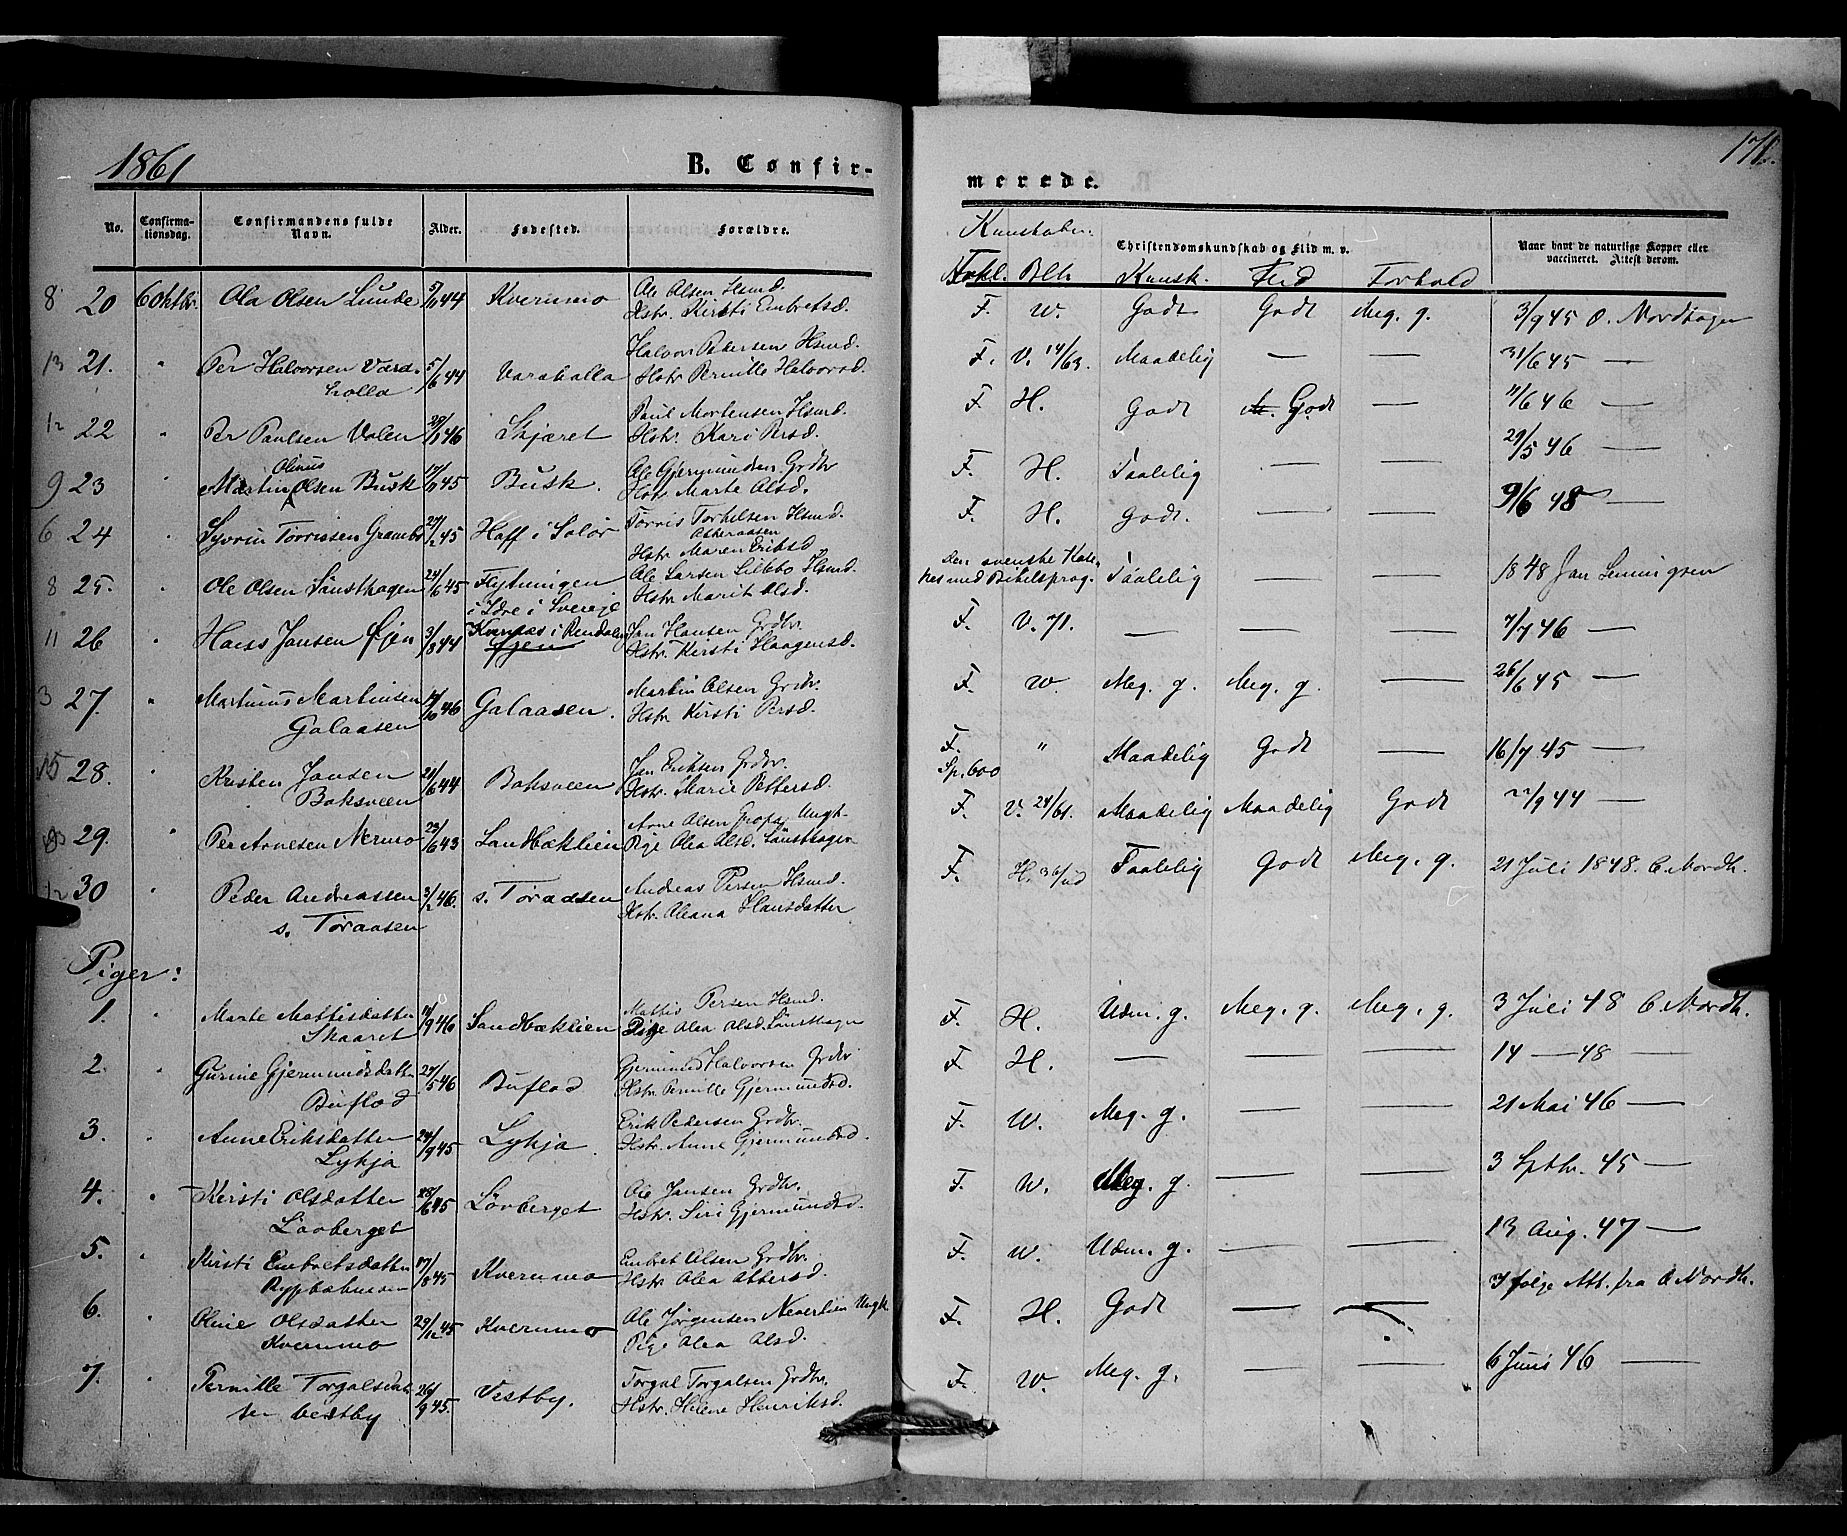 1861
B. Confir-
No.
Confirma-
tionsdag.
Confirmandens fulde
Navn.
Alder.
Fødested.
Forældre.
8 20 6 Oktbr. Ola Olsen Lunde 5/11 44 Kvernmo Ole Olsen Hsmd.
Hstr. Kirsti Embretsd.
13 21. " Per Halvorsen Vara-
holla 5/6 44 Varaholla Halvor Pedersen Hsmd.
Hstr. Pernille Halvorsd.
12 22 " Per Paulsen Volen 29/1 46 Skjæret Paul Mortensen Hsmd.
Hstr. Kari Persd.
9 23 " Martin Olinus Olsen Busk 17/11 45 Busk. Ole Gjermundsen Grdbr
Hstr. Marte Olsd.
6 24 " Syvrin Torrissen 27/2 45 Hoff i Solør Torris Torkelsen Hsmd.
Hstr. Maren Eriksd
8 25. " Ole Olsen Sønsthagen 24/6 45 Flytningen
i Idre i Sverige Ole Larsen Lillebo Hsmd.
Hstr. Marit Olsd.
11 26 " Hans Jansen Øjen 3/8 44 i Rendalen
Øjen Jan Hansen Grdbr.
Hstr. Kirsti Haagensd.
3 27. " Martinus Martinsen
Galaasen 17/10 46 Galaasen. Martin Olsen Grdbr.
Hstr. Kirsti Persd.
15 28. " Kristen Jansen
Baksveen 21/6 44 Baksveen Jan Eriksen Grdbr.
Hstr. Marie Pettersd.
29. " Per Arnesen Nermo 23/6 43 Sandbæklien Arne Olsen Ungk.
Pige Olea Olsd. Sønsthagen
12 30 " Peder Andreassen
s. Toraasen 3/2 46. s. Toraasen Andreas Persen Hsmd.
Hstr. Oleana Hansdatter
Piger:
1. " Marte Mattisdatter
Skaaret 11/9 46 Sandbæklien Mattis Persen Hsmd.
Pige Olea Olsd. Sønsthagen
2. " Gurine Gjermundsdatter
Buflod 24/5 46 Buflod Gjermund Halvorsen Grdbr
Hstr. Pernille Gjermundsd.
3. " Anne Eriksdatter
Lykja 24/9 45 Lykja Erik Pedersen Grdbr.
Hstr. Anne Gjermundsd.
4. " Kirsti Olsdatter
Lövberget 28/6 45 Lövberget Ole Jansen Grdbr.
Hstr. Siri Gjermundsd.
5. " Kirsti Embretsdatter
Rypbakmoen 17/8 45 Kvernmo Embret Olsen Grdbr.
Hstr. Olea Ottersd.
6. " Oline Olsdatter
Kvernmo 29/12 45 Kvernmo Ole Jørgensen Neverlien Ungk
Pige Olea Olsd.
7. " Pernille Torgalsdat-
ter Vestby 26/9 45. Vestby. Torgal Torgalsen Grdbr.
Hstr. Helene Henriksd.
171.
merede.
Kunskaber.
Christendomskundskab og Flid m. v.
Naar havt de naturlige Kopper eller
vaccineret. Attest derom.
Forkl. Blh Kunsk. Flid Forhold
F. W. Godt Godt Meg. g. 3/9 45 O. Nordhagen
F. V. 14/63. Maadelig — — 31/6 45 —
F. H. Godt M. Godt — 11/6 46 —
F. H. Taalelig — — 29/5 46 —
F. H. Godt. — — 9/6 48 —
Den svenske Kate-
kes med Bibelsprog. Taalelig — — 1848 Jan Henningsen
F. V. 71. — — — 7/7 46 —
F. W. Meg. g. Meg. g. — 26/6 45 —
F.
Sp. 600 " Maadelig Godt — 16/7 45 —
F. V. 24/61. Maadelig Maadelig Godt 7/9 44 —
F. H. 36/ud Taalelig Godt Meg. g. 21 Juli 1848. O. Nordh.
F. H. Udm. g. Meg. g. Meg. g. 3 Juli 48 O. Nordh.
F H. — — — 14 — 48 —
F. W. Meg. g. — — 21 Mai 46 —
F. W. Meg. g. — — 3 Sptbr. 45 —
F. W. Udm. g. — — 13 Aug. 47 —
F. H. Godt — — I følge Att. fra O. Nordh.
F. W. Meg. g. — — 6 Juni 46 —